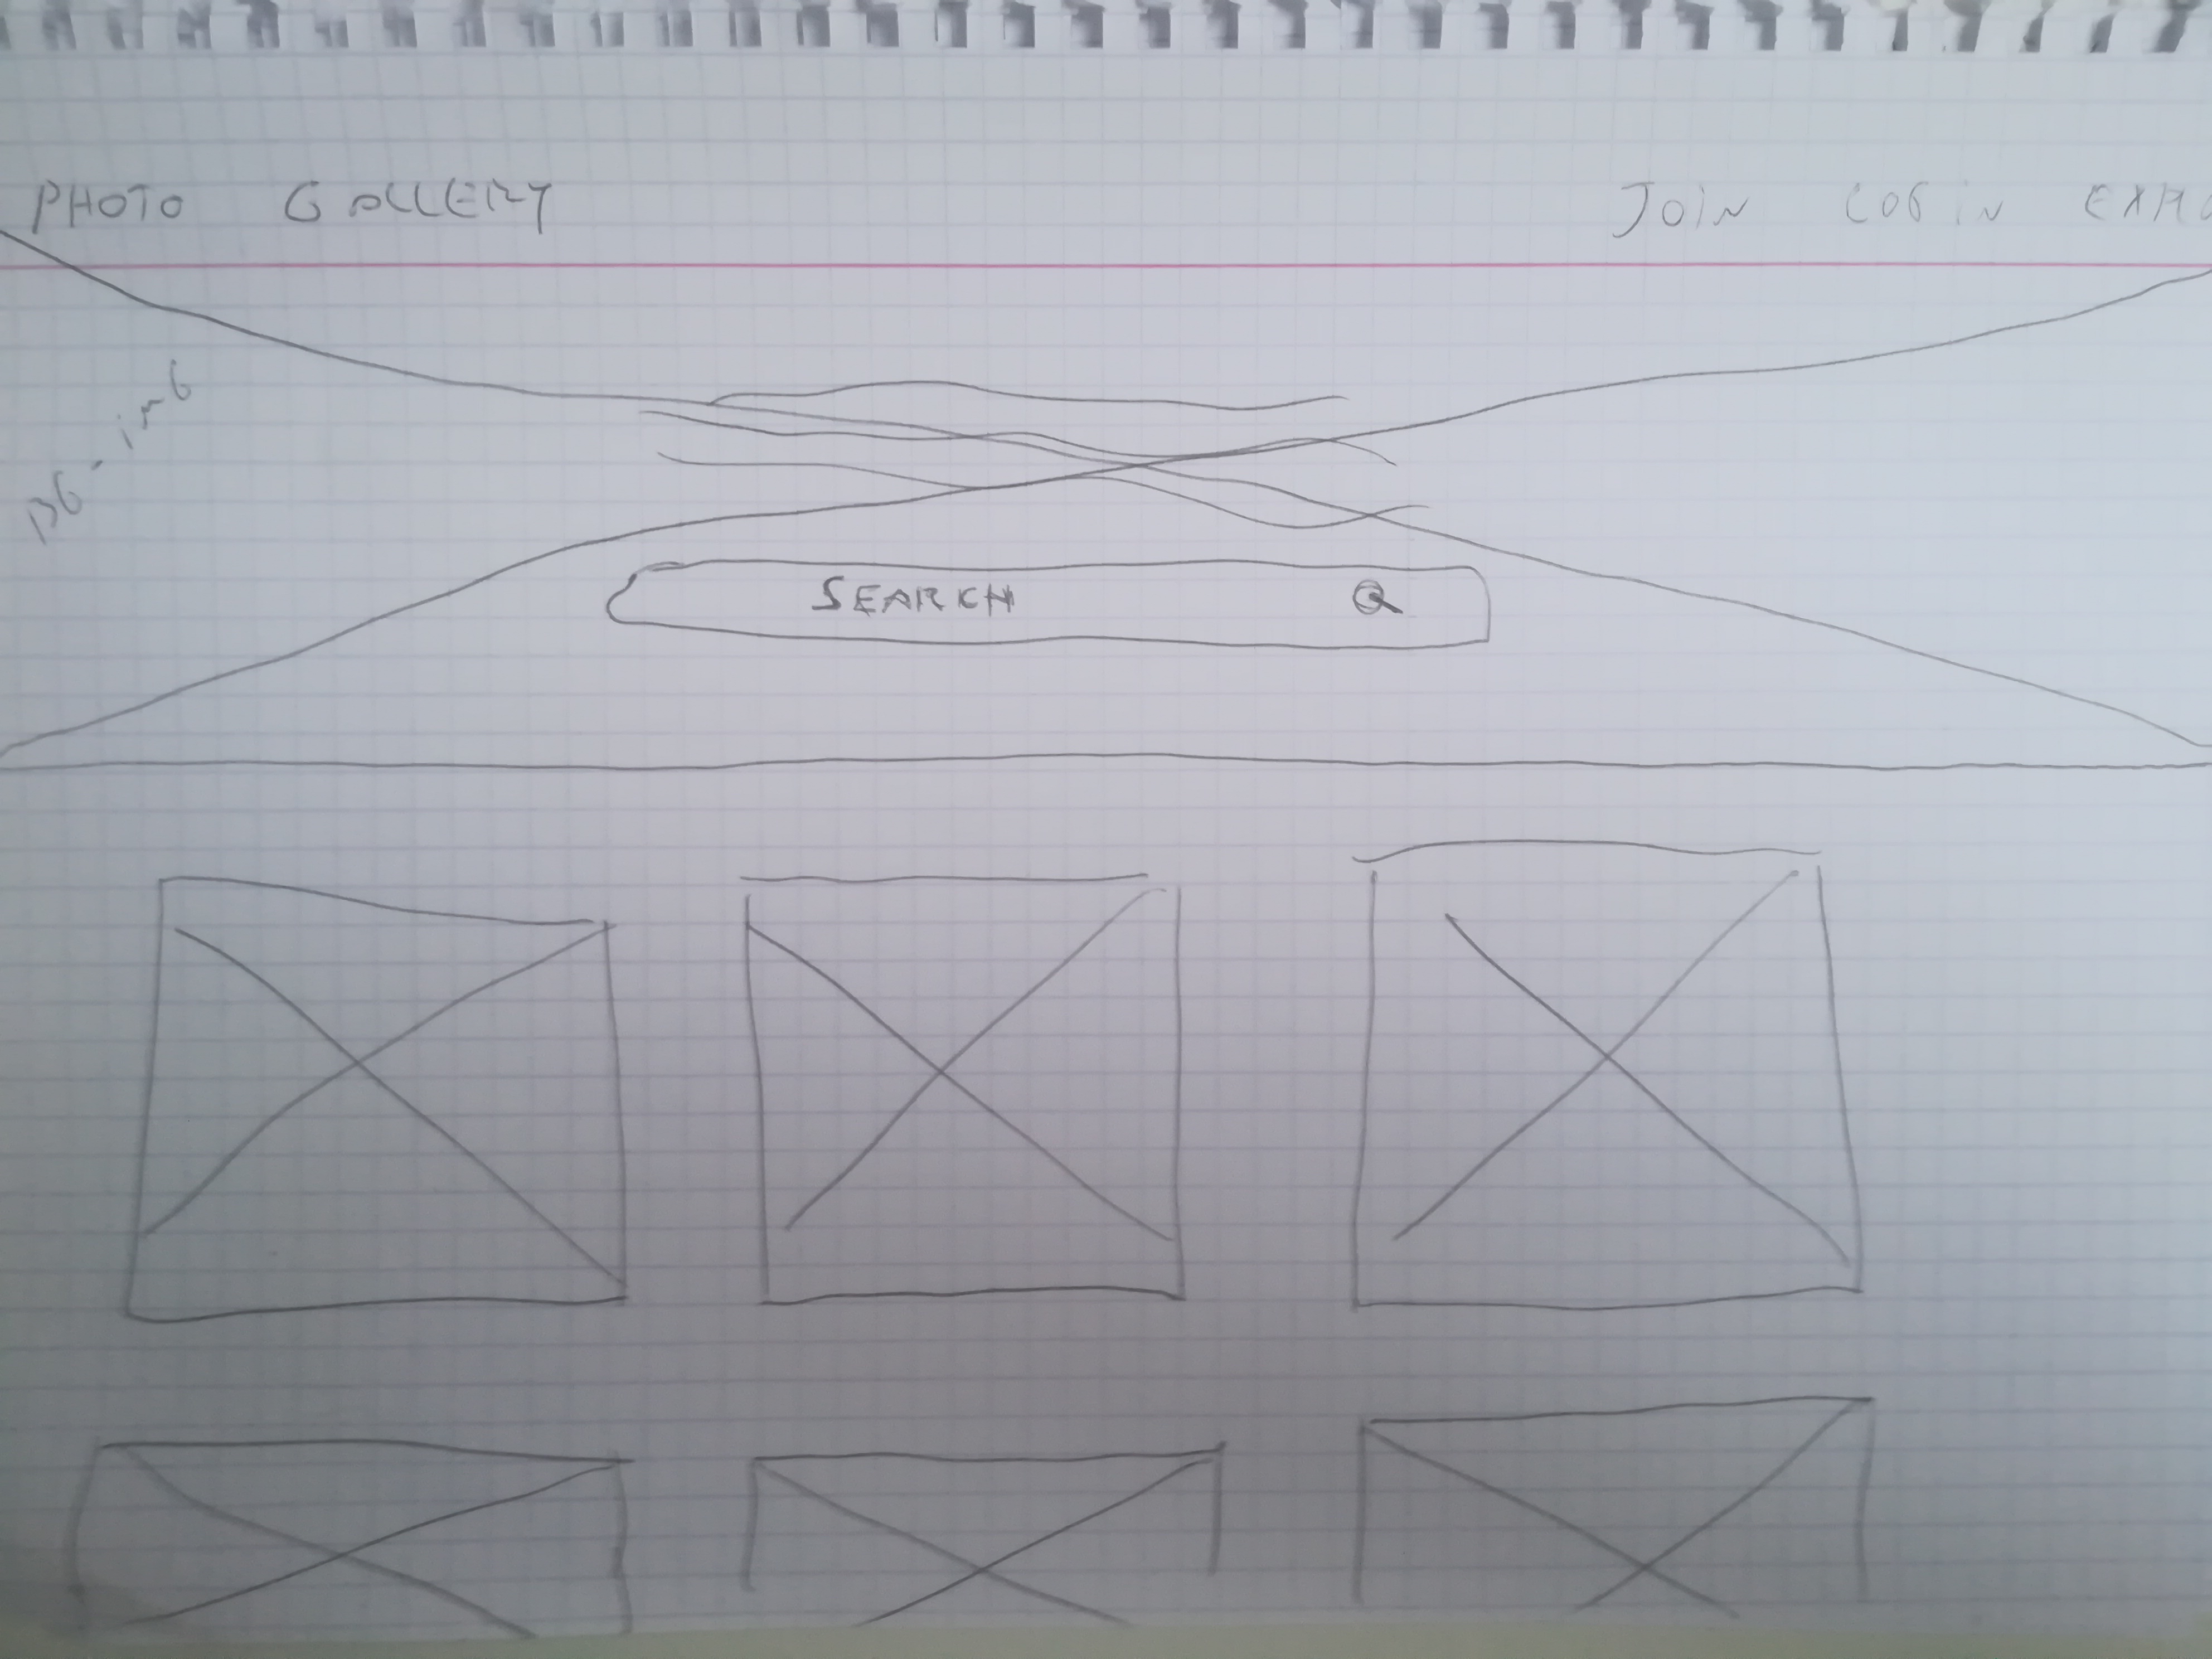 PHOTO GALLERY JOIN LOGIN
BG-img
SEARCH